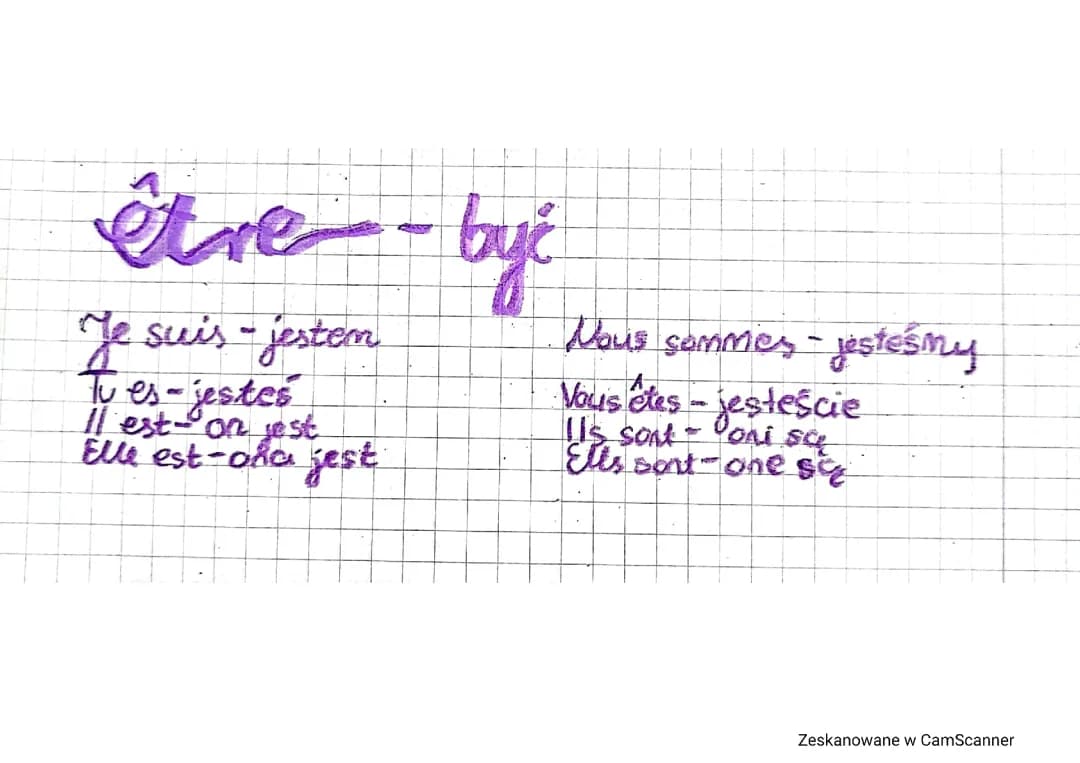 être - być
Je suis - jestem
Tu es - jesteś
Il est - on jest
Elle est - ona jest
Nous sommes - jesteśmy
Vous êtes - jesteście
Ils sont - oni są
Elles sont - one są
Zeskanowane w CamScanner